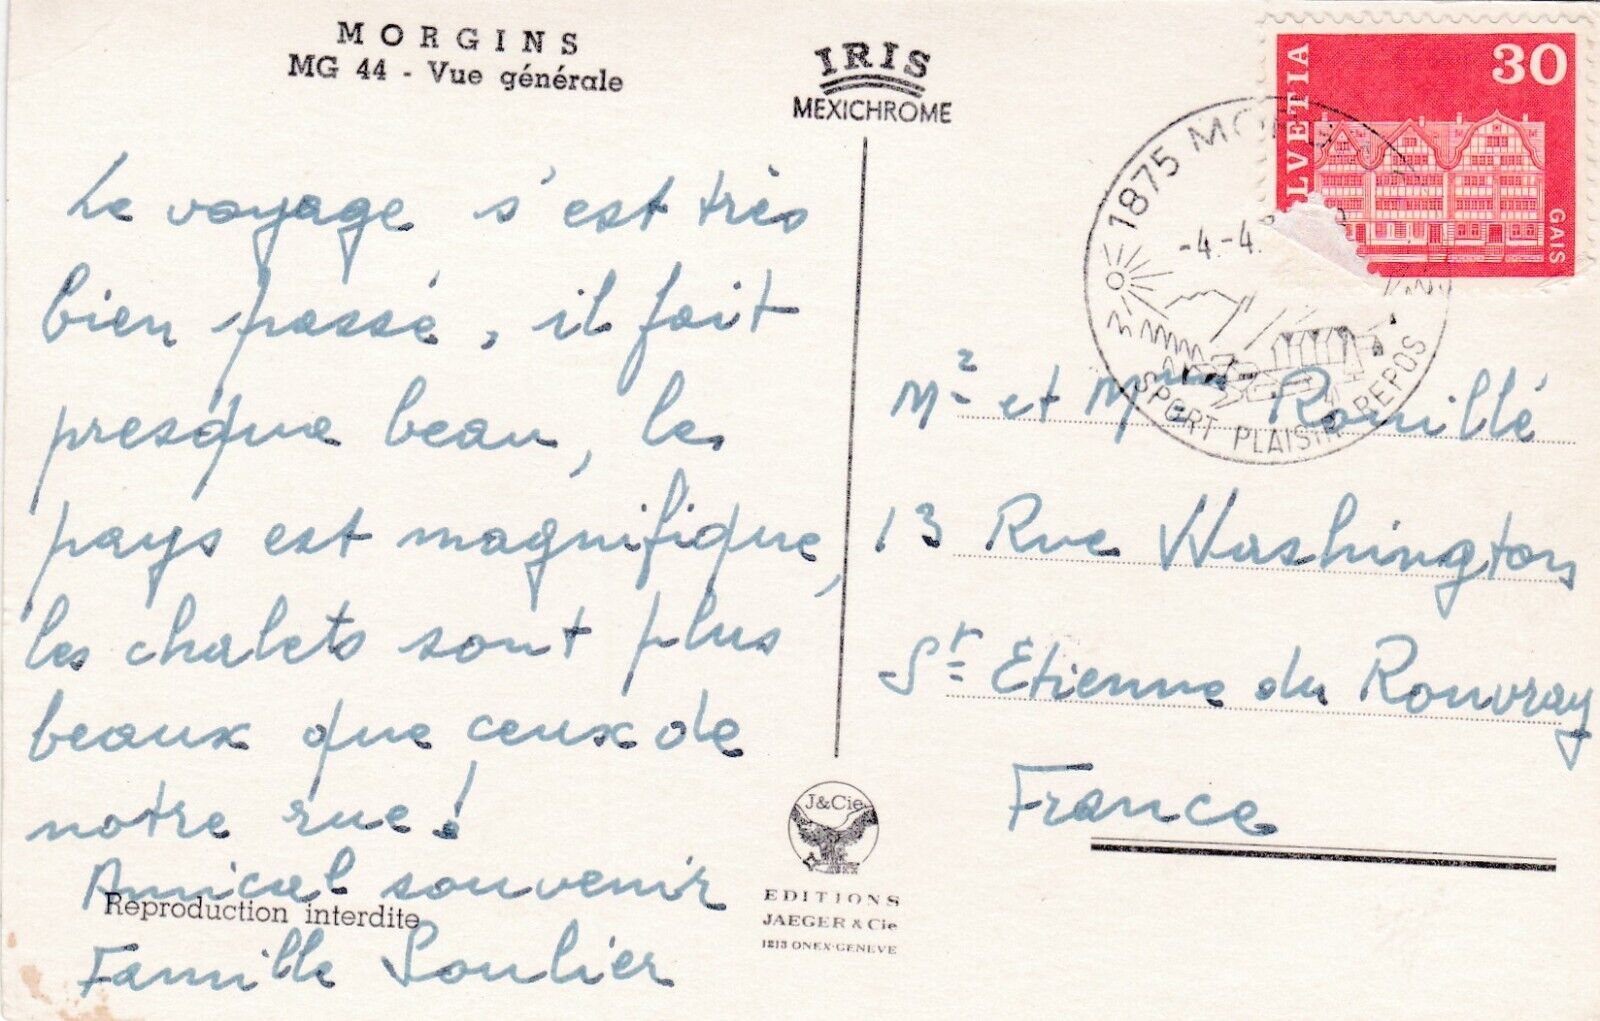 MORGINS
MG 44 - Vue générale
IRIS
MEXICHROME
HELVETIA
30
GAIS
1875 MORGINS
-4.-4.
SPORT PLAISIR REPOS
Le voyage s'est très
bien passé, il fait
presque beau, les
pays est magnifique,
les chalets sont plus
beaux que ceux de
notre rue!
Amical souvenir
Famille Soulier
Reproduction interdite
J&Cie
EDITIONS
JAEGER & Cie
1213 ONEX-GENEVE
Mr et Mme Rouillé
13 Rue Washington
St Etienne du Rouvray
France